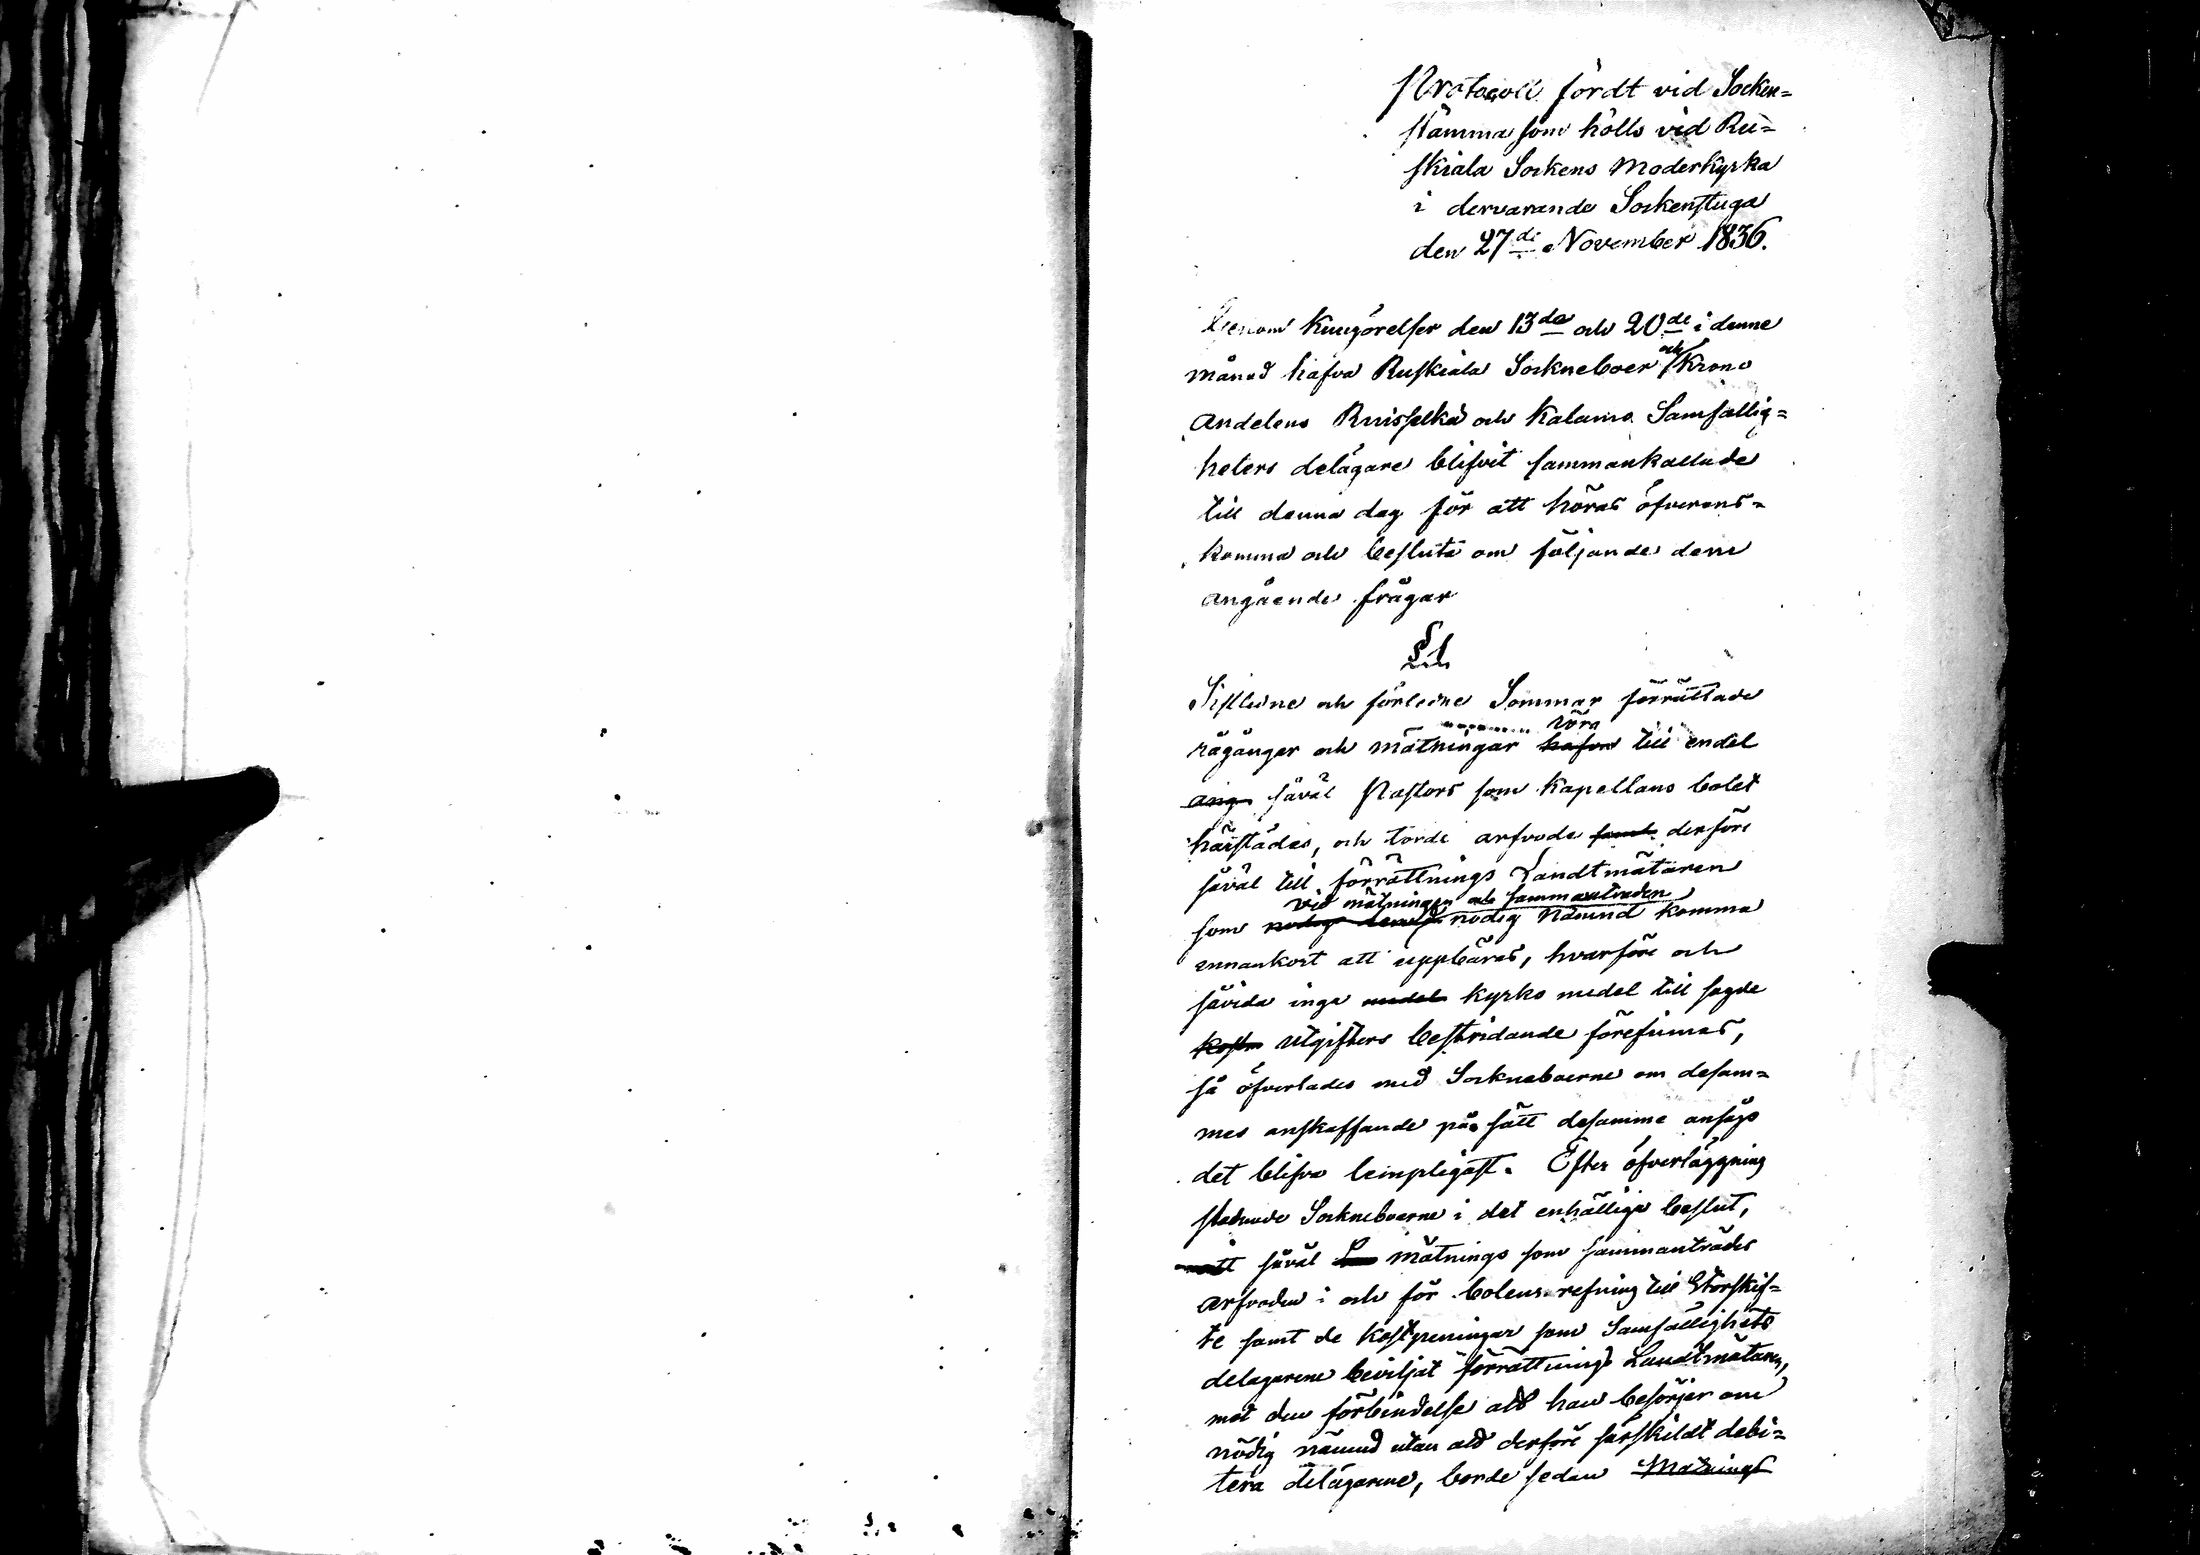 Protocoll fördt vid Socken=
stämma som hölls vid Ru=
skiala Sockens Moderkyrka
i dervarande Sockenstuga
den 27de November 1836.
Genom Kungörelser den 13de och 20de i denne
månad hafva Ruskiala Sockneboer och Krono
Andelens Ruisselkä och Kalamo Samfällig=
heters delägare blifvit sammankallade
till denna dag för att höras öfverens=
komma och besluta om följande dem
angående frågor
§ 1
Sistledne och förledne Sommar förrättade
rågångar och mätningar hafva röra till endel
ang såväl Pastors som Kapellans bolet
härstädes, och torde arfvode samt derföre
såväl till förrättnings Landtmätaren
vid mätningen och sammanträden
som nödig nämnd komma
ennankort att uppbäras, hvarföre och
såvida inga medel kyrko medel till sagde
Kostn utgifters bestridande förefinnas,
så öfverlades med Sockneboerne om desam=
mas anskaffande på sätt desamme ansågo
det blifva lempligast. Efter öfverläggning
stadnade Sockneboerne i det enhällige beslut,
att såväl mätnings som sammanträdes
arfvoden i och för bolens refning till Storskif=
te samt de kostpenningar som Samfällighets
delagarene beviljat förrättnings Landtmätaren,
mot den förbindelse att han besörjer om
nödig nämnd utan att derföre särskildt debi=
tera delägarene, borde sedan Mätnings